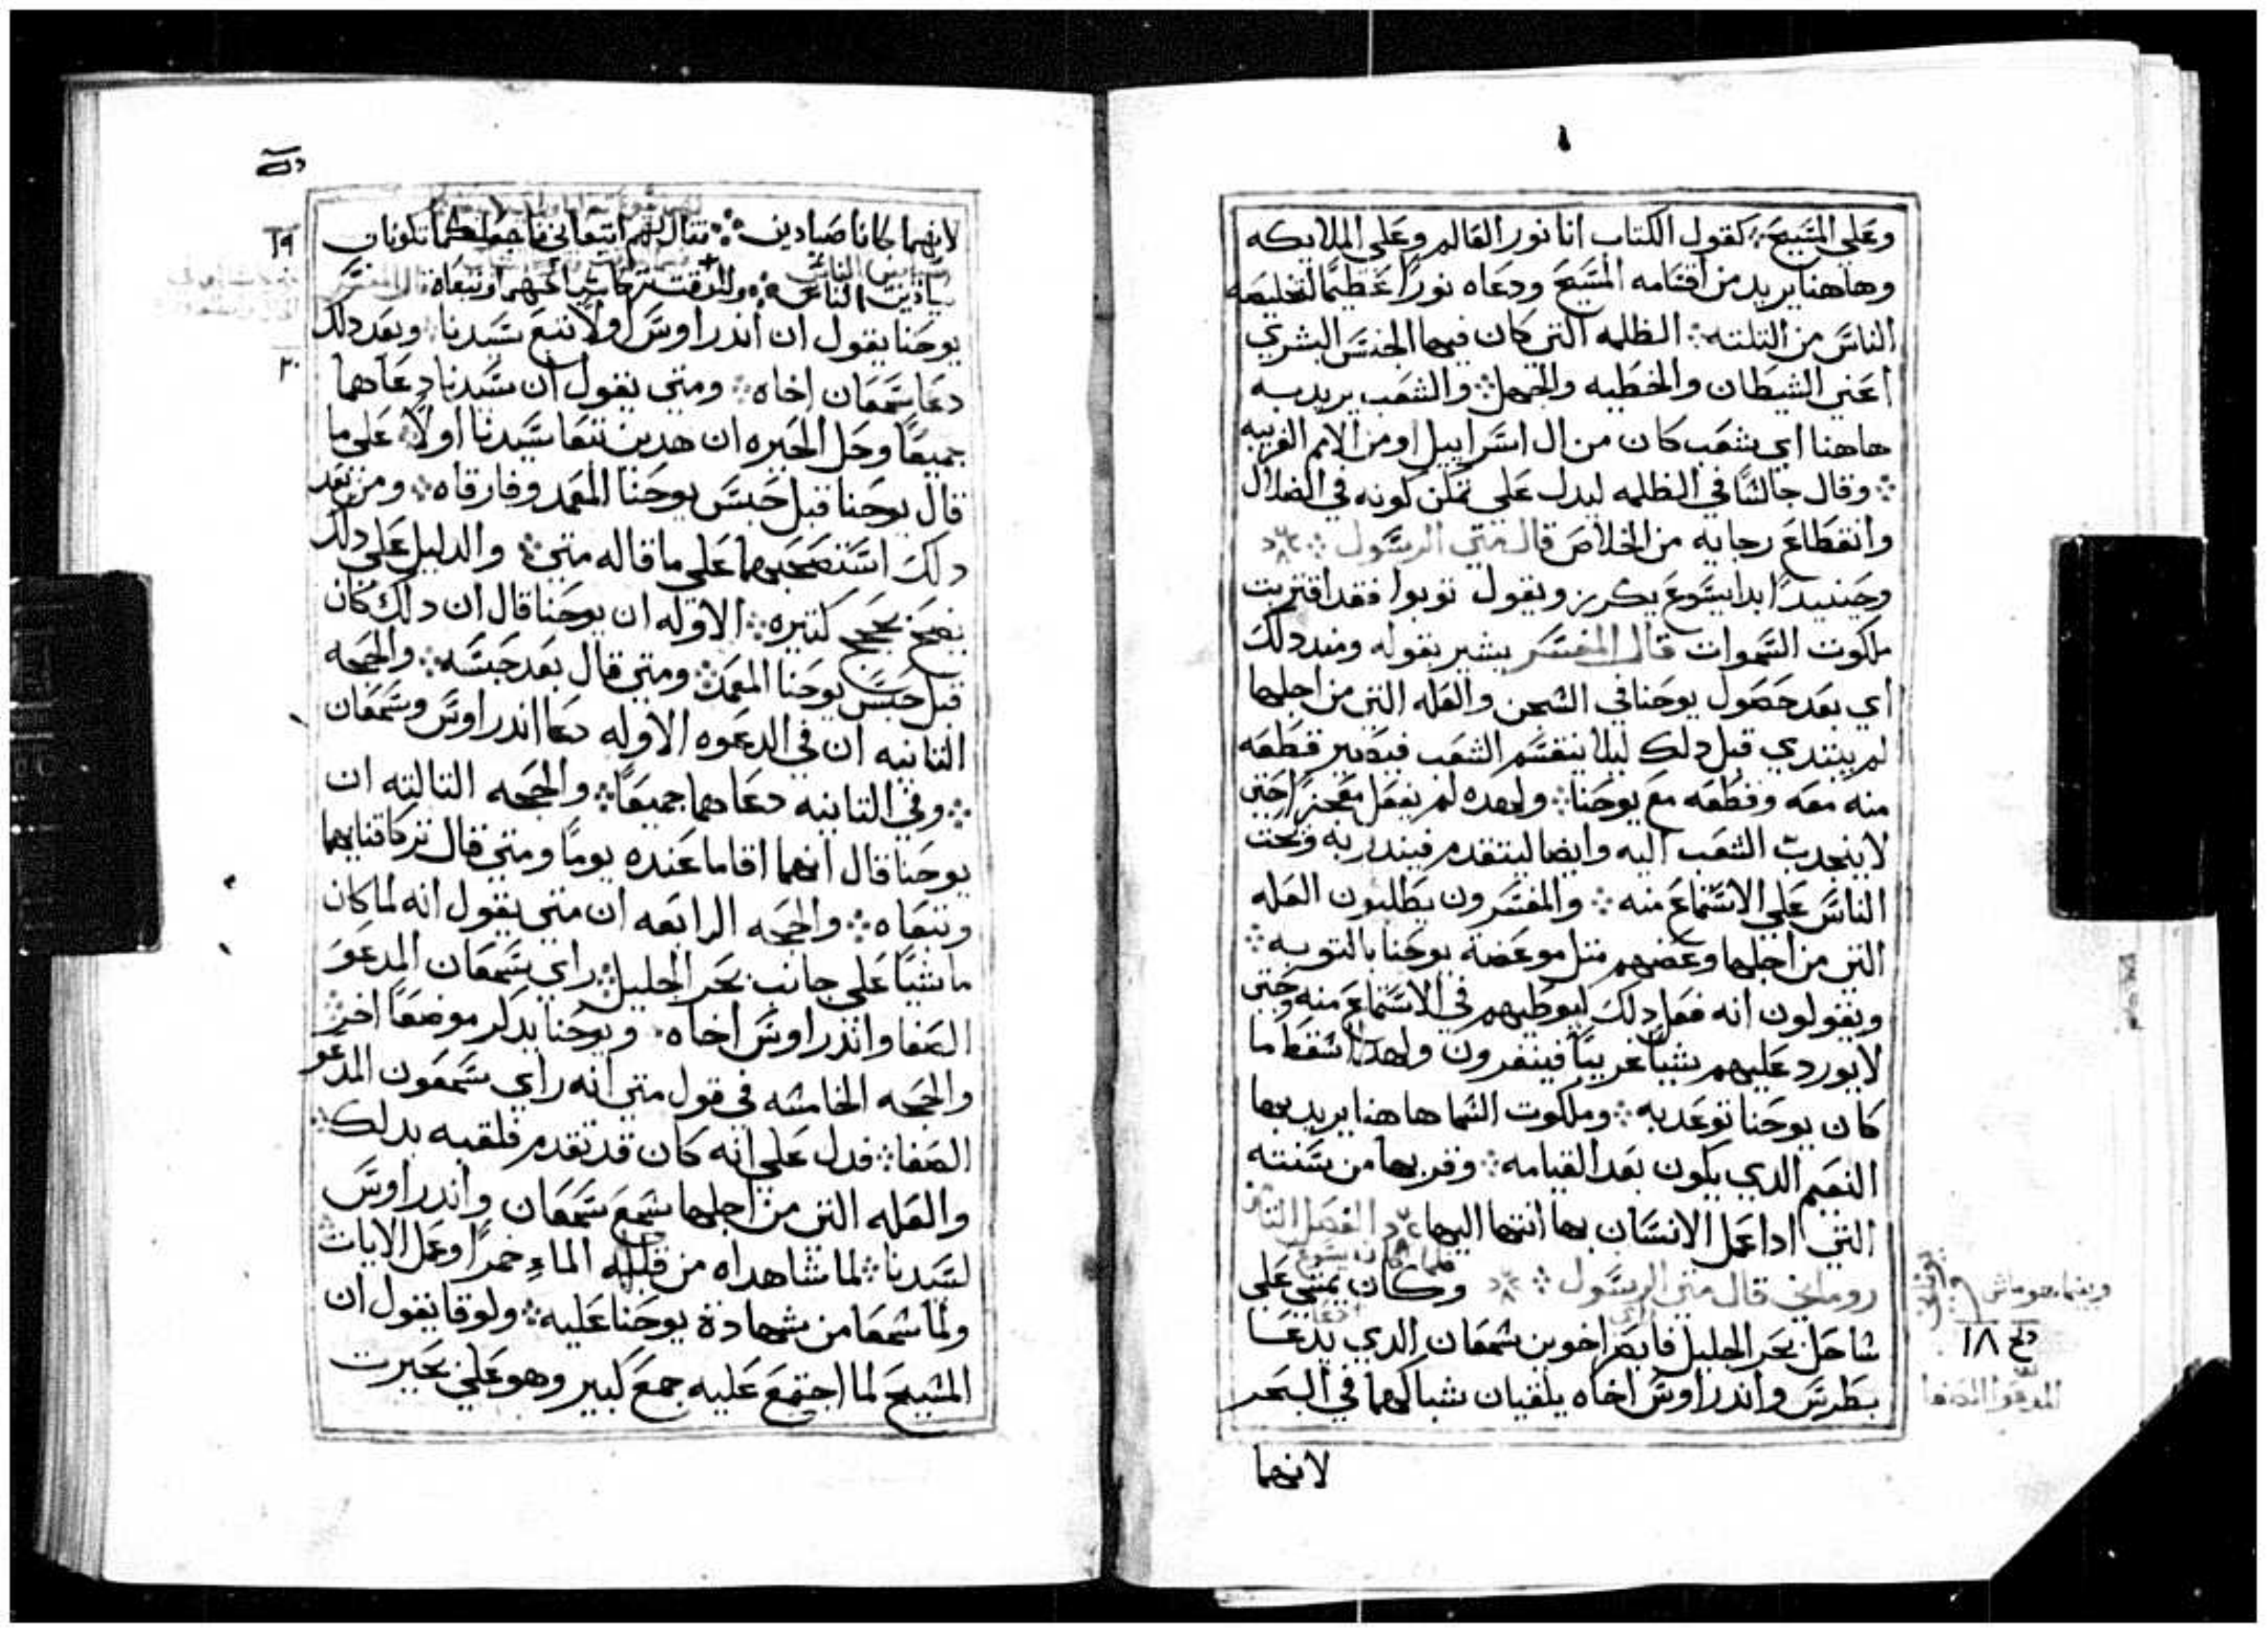 وعلي المسيح ܀ كقول الكتاب انا نور العالم وعلي الملايكه
وهاهنا يريد من اقنامه المسيح ودعاه نورًا عظيمًا لتخليصه
الناس من التلته ܀ الظلمه التي كان فيها الجنس البشري
اعني الشيطان والخطيه والجهل ܀ والشعب يريد به
هاهنا اي شعب كان من ال اسراييل او من الامم الغريبه
܀ وقال جالسًا في الظلمه ليدل علي تمكن كونه في الضلال
وانقطاع رجايه من الخلاص قال متي الرسول ܀
وحينيدٍ ابدا يسوع يكرز ويقول توبوا فقد اقتربت
ملكوت السموات قال المفسر يشير بقوله ومند دلك
اي بعد حصول يوحنا في السجن والعله التي من اجلها
لم يبتدي قبل دلك ليلا ينقسم الشعب فيصير قطعه
منه معه وقطعه مع يوحنا ܀ ولهده لم يفعل معجزًا حتي
لا ينجدب الشعب اليه وايضا ليتقدم فيندر به ويحث
الناس علي الاستماع منه ܀ والمفسرون يطلبون العله
التي من اجلها وعضهم متل موعضة يوحنا بالتوبه ܀
ويقولون انه فعل دلك ليوطيهم في الاستماع منه وحتي
لا يورد عليهم شيًا غريبًا فينفرون ولهدا اسقط ما
كان يوحنا توعد به ܀ وملكوت السما هاهنا يريد بها
النعيم الدي يكون بعد القيامه ܀ وقربها من سنته
التي ادا عمل الانسان بها انتها اليها د الفصل التاني
روماني قال متي الرسول ܀ وكان يمشي علي
وبينما هو ماش
دح ١٨
شاحل بحر الجليل فابصر اخوين سمعان الدي يدعا
بطرس واندراوس اخاه يلقيان شباكهما في البحر
المدعوا الصفا
لانهما
لانهما كانا صيادين ܀ فقال لهم اتبعاني فاجعلكما تكونان
١٩
صيادين الناس ܀ وللوقت تركا شباكهم وتبعاه قال المفسر
يوحنا يقول ان اندراوس اولًا تبع سيدنا وبعد دلك
٢٠
دعا سمعان اخاه ܀ ومتي يقول ان سيدنا دعاهما
جميعًا وحل الحيره ان هدين تبعا سيدنا اولًا علي ما
قال يوحنا قبل حبس يوحنا المعمد وفارقاه ܀ ومن بعد
دلك استصحبهما علي ما قاله متي ܀ والدليل علي دلك
يصح بحجج كتيره ܀ الاوله ان يوحنا قال ان دلك كان
قبل حبس يوحنا المعمد ܀ ومتي قال بعد حبسه ܀ والحجه
التانيه ان في الدعوه الاوله دعا اندراوس وسمعان
܀ وفي التانيه دعاهما جميعًا ܀ والحجه التالته ان
يوحنا قال انهما اقاما عنده يومًا ومتي قال تركا قنايهما
وتبعاه ܀ والحجه الرابعه ان متي يقول انه لما كان
ماشيًا علي جانب بحر الجليل ܀ راي سمعان المدعو
الصفا واندراوس اخاه ܀ ويوحنا يدكر موضعًا اخر ܀
والحجه الخامسه في قول متي انه راي سمعون المدعو
الصفا ܀ فدل علي انه كان قد تقدم فلقبه بدلك ܀
والعله التي من اجلها سمع سمعان واندراوس
لسيدنا ܀ لما شاهداه من قلبه الماء خمرًا وعمل الايات
ولما سمعا من شهادة يوحنا عليه ܀ ولوقا يقول ان
المسيح لما اجتمع عليه جمع كبير وهو علي بحيرت